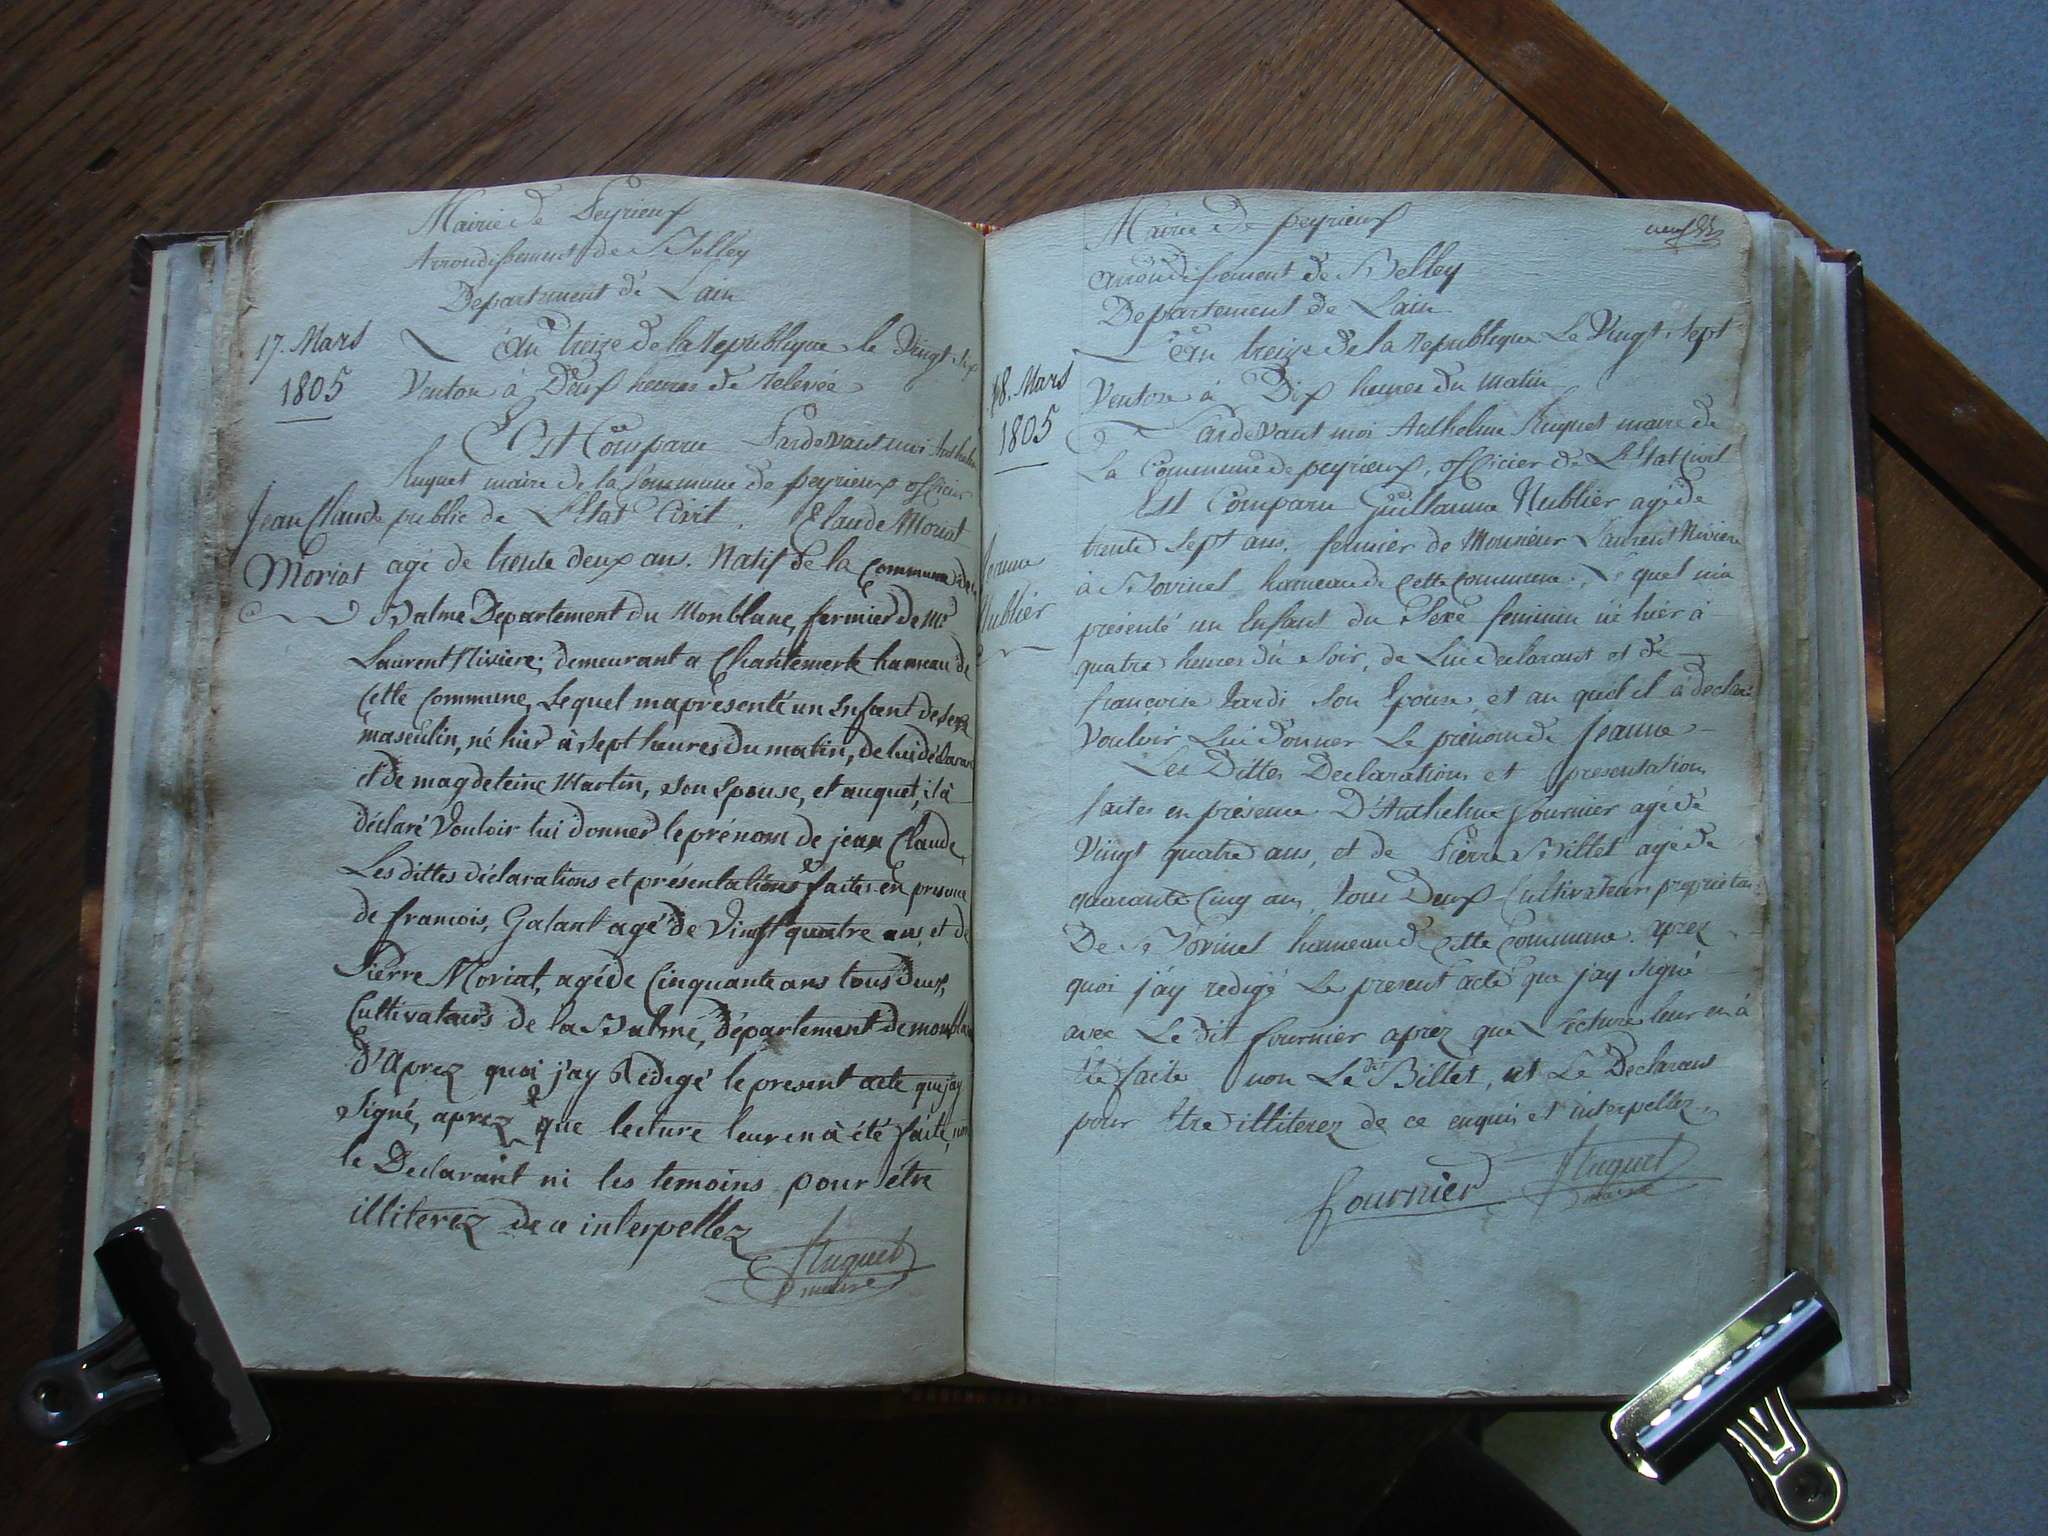 Mairie de Peyrieux
Arrondissement de Belley
Departement de Lain
17. Mars
1805
an treize de la republique le Vingt Six
Ventose à Deux heures de relevée
Est Comparu Pardevant moi Anthelme
huguet maire de la Commune de peyrieux officier
public de L'Etat Civil. Claude Moriat
Jean Claude
Moriat
agé de trente deux ans. Natif de la commune de la
Balme Departement du Monblanc, fermier de Mr
Laurent Riviere; demeurant a Chantemerle hameau de
Cette Commune, Lequel ma presenté un Enfant de sexe
masculin, né hier à sept heures du matin, de lui déclarant
et de magdeleine Martin, son Epouse, et auquel il à
déclaré Vouloir lui donner le prénom de jean Claude,
Les dittes déclarations et présentations faites en presence
de francois, Galant agé de Vingt quatre ans, et de
Pierre Moriat, agé de Cinquante ans tous deux,
Cultivateurs de la Balme, département de monblanc
D'Aprez quoi j'ay Redigé le present acte que j'ay
signé, aprez que lecture leur en à été faite, non
le Declarant ni les temoins pour être
illiterez de ce interpellez
huguet
maire
Mairie de peyrieux
arrondissement de Belley
Departement de Lain
18. Mars
1805
an treize de la republique Le Vingt Sept
Ventose à Dix heures du matin
Pardevant moi Anthelme huguet maire de
La Commune de peyrieux, officier de L'Etat Civil
Est Comparu Guillaume Nublier agé de
Jeanne
Nublier
trente sept ans, fermier de Monsieur Laurent Riviere
à Bovinel hameau de cette commune, Le quel m'a
presenté un Enfant du Sexe feminin né hier à
quatre heures du soir, de Lui declarant et de
francoise Jardi son Epouse, et au quel il à declaré
Vouloir Lui donner Le prénom de Jeanne
Les Dittes Declarations et presentations
faites en présence D'Anthelme fournier agé de
Vingt quatre ans, et de Pierre Billet agé de
quarante Cinq ans, tous Deux Cultivateurs proprietaires
De Bovinel hameau de Cette Commune. aprez
quoi j'ay redigé Le present acte que j'ay signé
avec Le dit fournier aprez que Lecture leur en à
été faite non Le dt Billet, et Le Declarant
pour être illiterez de ce enquis et interpellez
fournier huguet
maire